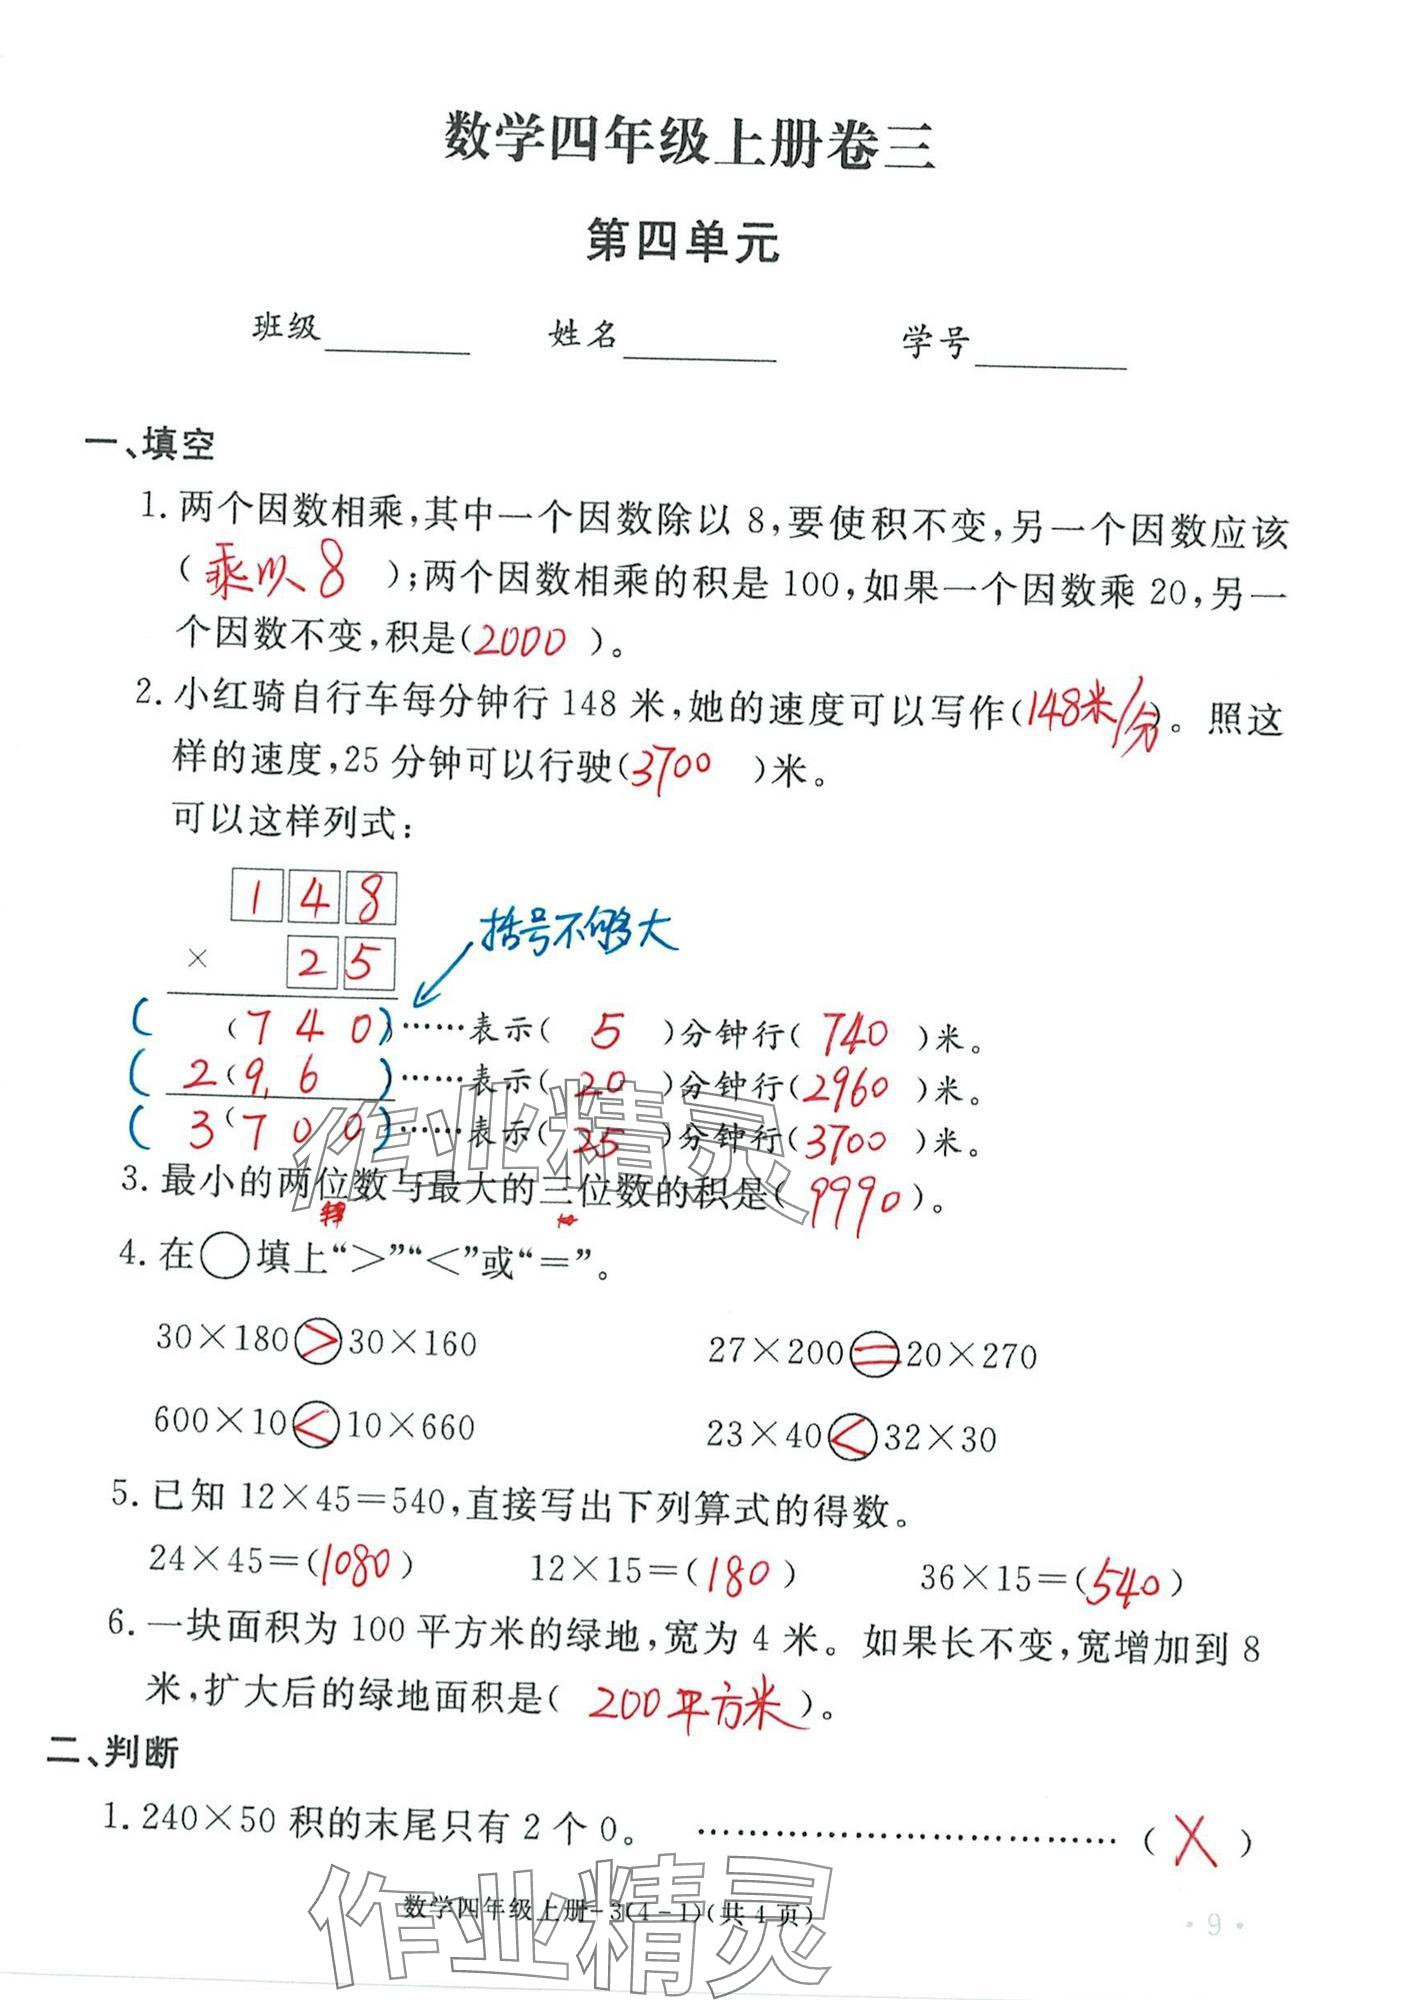 数学四年级上册卷三
第四单元
班级 姓名 学号
一、填空
1.两个因数相乘,其中一个因数除以8,要使积不变,另一个因数应该
(乘以8);两个因数相乘的积是100,如果一个因数乘20,另一
个因数不变,积是(2000)。
2.小红骑自行车每分钟行148米,她的速度可以写作(148米/分)。照这
样的速度,25分钟可以行驶(3700)米。
可以这样列式:
1 4 8
括号不够大
× 2 5
( (7 4 0)……表示(5)分钟行(740)米。
( 2(9,6 )……表示(20)分钟行(2960)米。
( 3(7 0 0)……表示(25)分钟行(3700)米。
3.最小的两位数与最大的三位数的积是(9990)。
4.在○填上“>”“<”或“=”。
30×180>30×160 27×200=20×270
600×10<10×660 23×40<32×30
5.已知12×45=540,直接写出下列算式的得数。
24×45=(1080) 12×15=(180) 36×15=(540)
6.一块面积为100平方米的绿地,宽为4米。如果长不变,宽增加到8
米,扩大后的绿地面积是(200平方米)。
二、判断
1.240×50积的末尾只有2个0。 ……………………………(X)
数学四年级上册-3(4-1)(共4页)
·9·
作业精灵
作业精灵